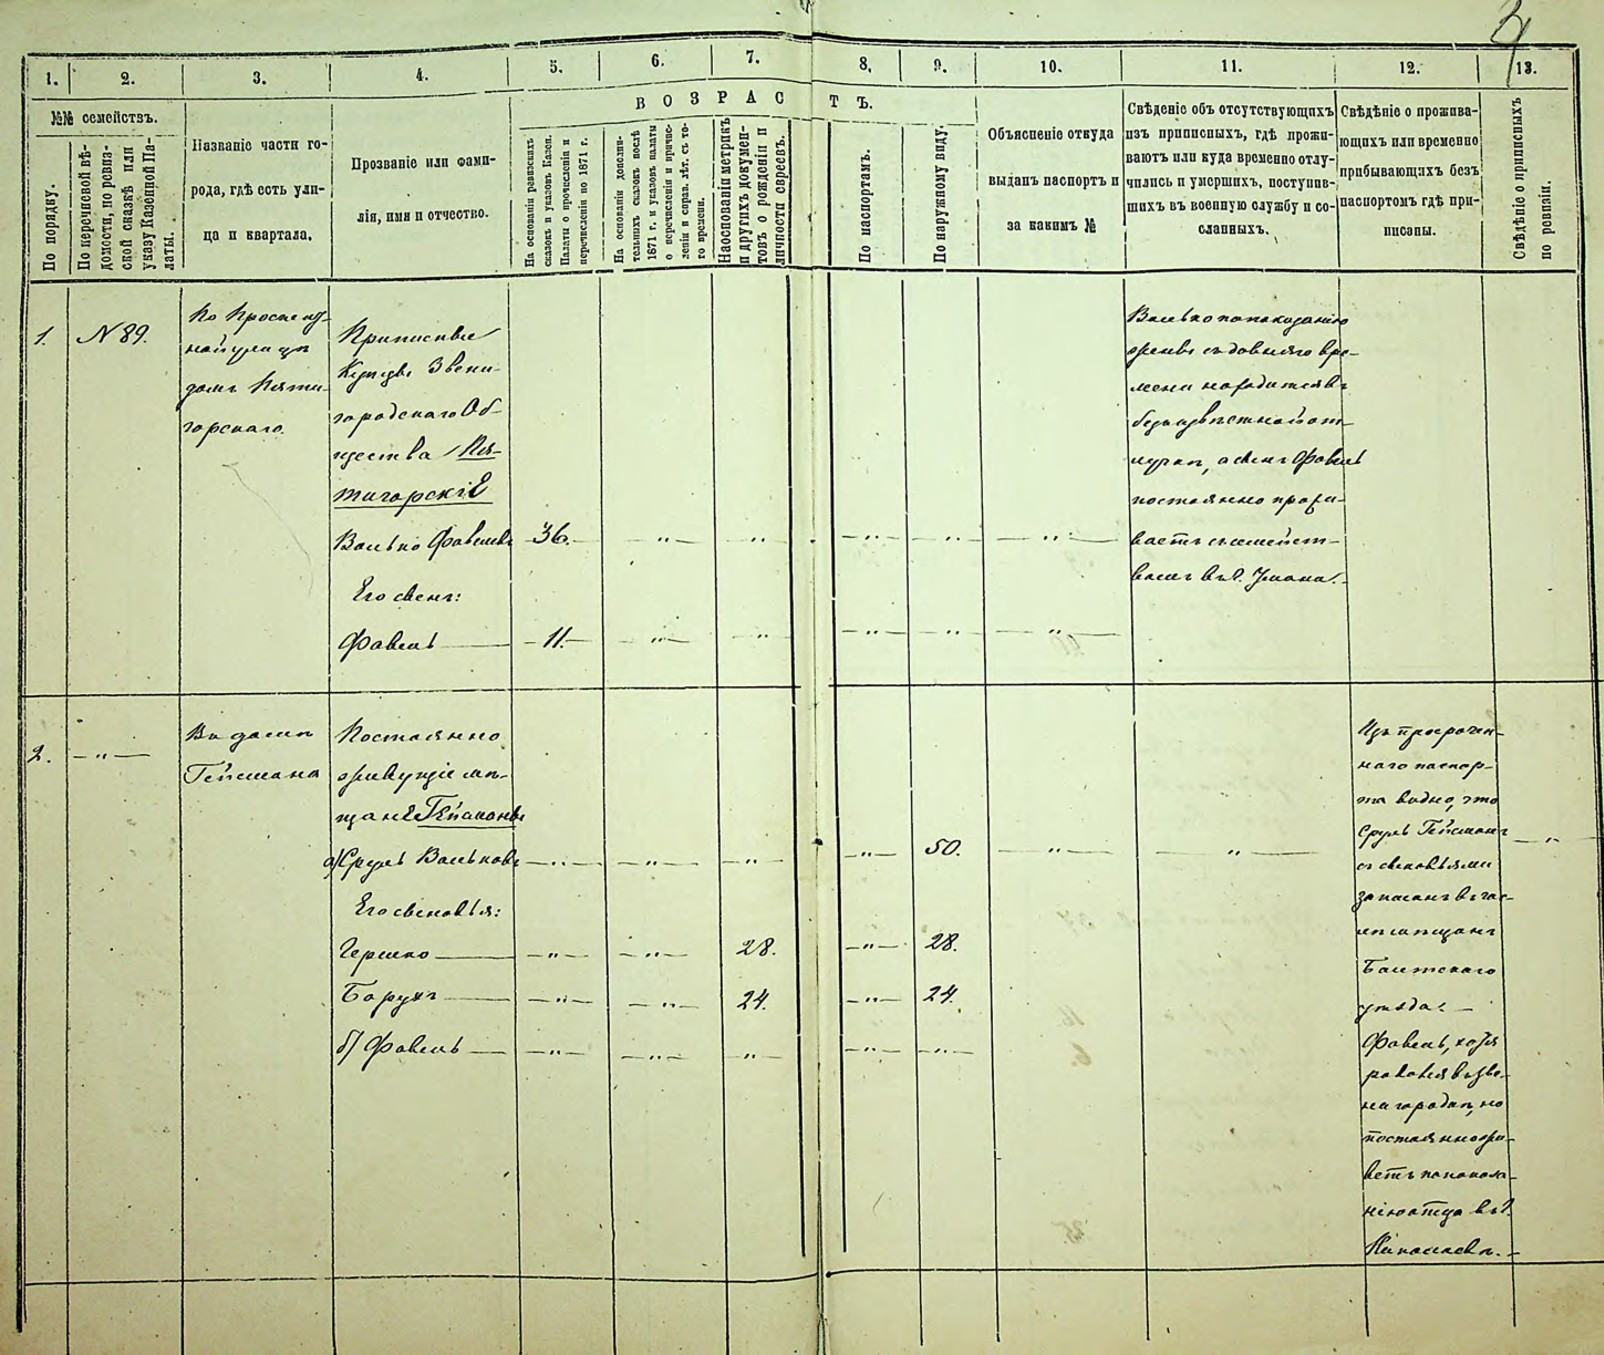 4
1. 2. 3. 4. 5. 6. 7. 8. 9. 10. 11. 12. 13.
№№ семействъ.
По порядку.
По перечневой вѣ-
домости, по ревиз-
ской сказкѣ или
указу Казенной Па-
латы.
Названіе части го-
рода, гдѣ есть ули-
ца и квартала.
Прозваніе или фами-
лія, имя и отчество.
ВОЗРАСТЪ.
На основаніи ревизскихъ
сказокъ и указовъ Казен.
Палаты о причисленіи и
перечисленіи по 1871 г.
На основаніи дополни-
тельныхъ сказокъ послѣ
1871 г. и указовъ палаты
о перечисленіи и причис-
леніи и справ. лѣт. съ то-
го времени.
На основаніи метрикъ
и другихъ докумен-
товъ о рожденіи и
личности евреевъ.
По паспортамъ.
По наружному виду.
Объясненіе откуда
выданъ паспортъ и
за какимъ №
Свѣденіе объ отсутствующихъ
изъ приписныхъ, гдѣ прожи-
ваютъ или куда временно отлу-
чились и умершихъ, поступив-
шихъ въ военную службу и со-
сланныхъ.
Свѣдѣніе о прожива-
ющихъ или временно
прибывающихъ безъ
паспортомъ гдѣ при-
писаны.
Свѣдѣніе о приписныхъ
по ревизіи.
1.
№ 89.
По Проспект-
ной улицѣ
домъ Пяти-
горскаго.
Приписные
Купцы Звени-
городскаго Об-
щества Пя-
тигорскіе
Валько Фавелевъ 36.
Его сынъ:
Фавель 11.
Валько по показанію
жены съ давняго вре-
мени находится въ
безъизвѣстной от-
лучкѣ, а сынъ Фавель
постоянно прожи-
ваетъ съ семейст-
вомъ въ г. Умани.
2.
Въ домѣ
Гейсмана
Постоянно
живущіе мѣ-
щане Гейсманы
а) Сруль Вальковъ 50.
Его сыновья:
Гершко 28. 28.
Борухъ 24. 24.
б) Фавель
Изъ просрочен-
наго паспор-
та видно, что
Сруль Гейсманъ
съ сыновьями
записанъ въ чис-
лѣ мѣщанъ
Балтскаго
уѣзда.
Фавель, хотя
родился въ Зве-
нигородкѣ, но
постоянно жи-
ветъ по показа-
нію отца въ г.
Николаевѣ.